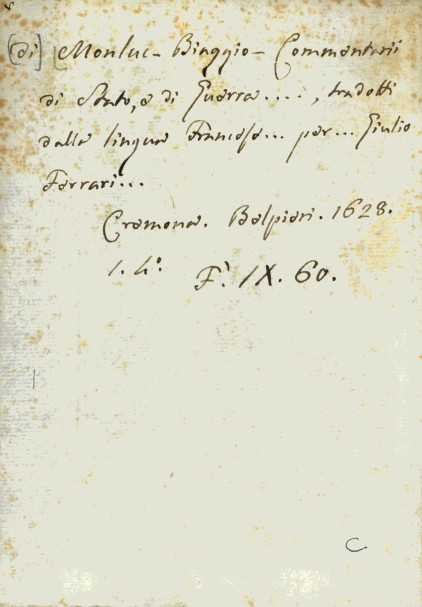 (di) Monluc - Biaggio - Commentarii
di Stato, e di Guerra ...., tradotti
dalla lingua Francese... per... Giulio
Ferrari...
Cremona. Belpieri. 1628.
1. 4.º F.` IX. 60.
C.